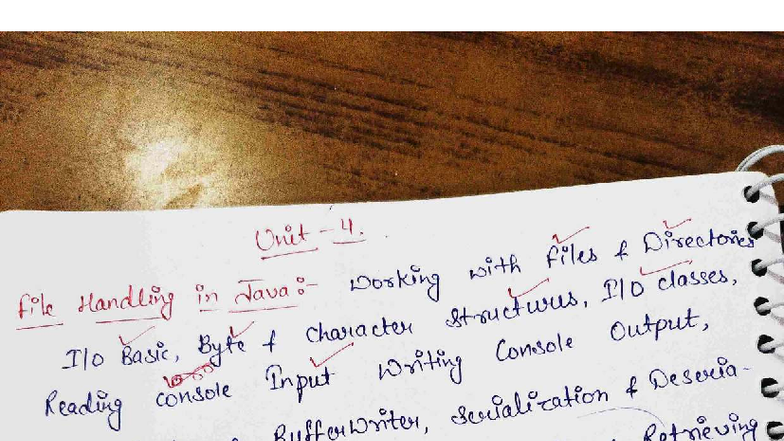 Unit - 4.
File Handling in Java :- Working with files & Directories
I/O Basic, Byte & character structures, I/O classes,
Reading console Input Writing Console Output,
BufferWriter, Serialization & Deseria-
Retrieving